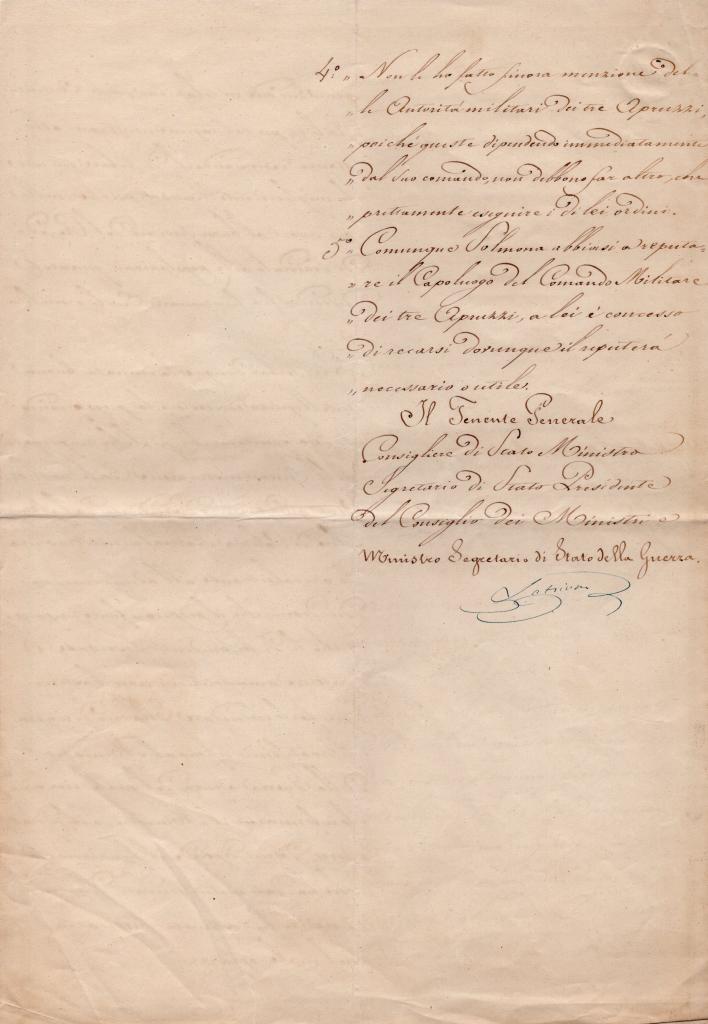 4.° „ Non le ho fatto finora menzione del-
„ le Autorità militari dei tre Apruzzi,
„ poiché queste dipendendo immediatamente
„ dal suo comando, non debbono far altro, che
„ prettamente eseguire i di lei ordini.
5° „ Comunque Solmona abbiasi a reputa-
„ re il Capoluogo del Comando Militare
„ dei tre Apruzzi, a lei è concesso
„ di recarsi dovunque il reputerà
„ necessario o utile.
Il Tenente Generale
Consigliere di Stato Ministro
Segretario di Stato Presidente
del Consiglio dei Ministri e
Ministro Segretario di Stato della Guerra.